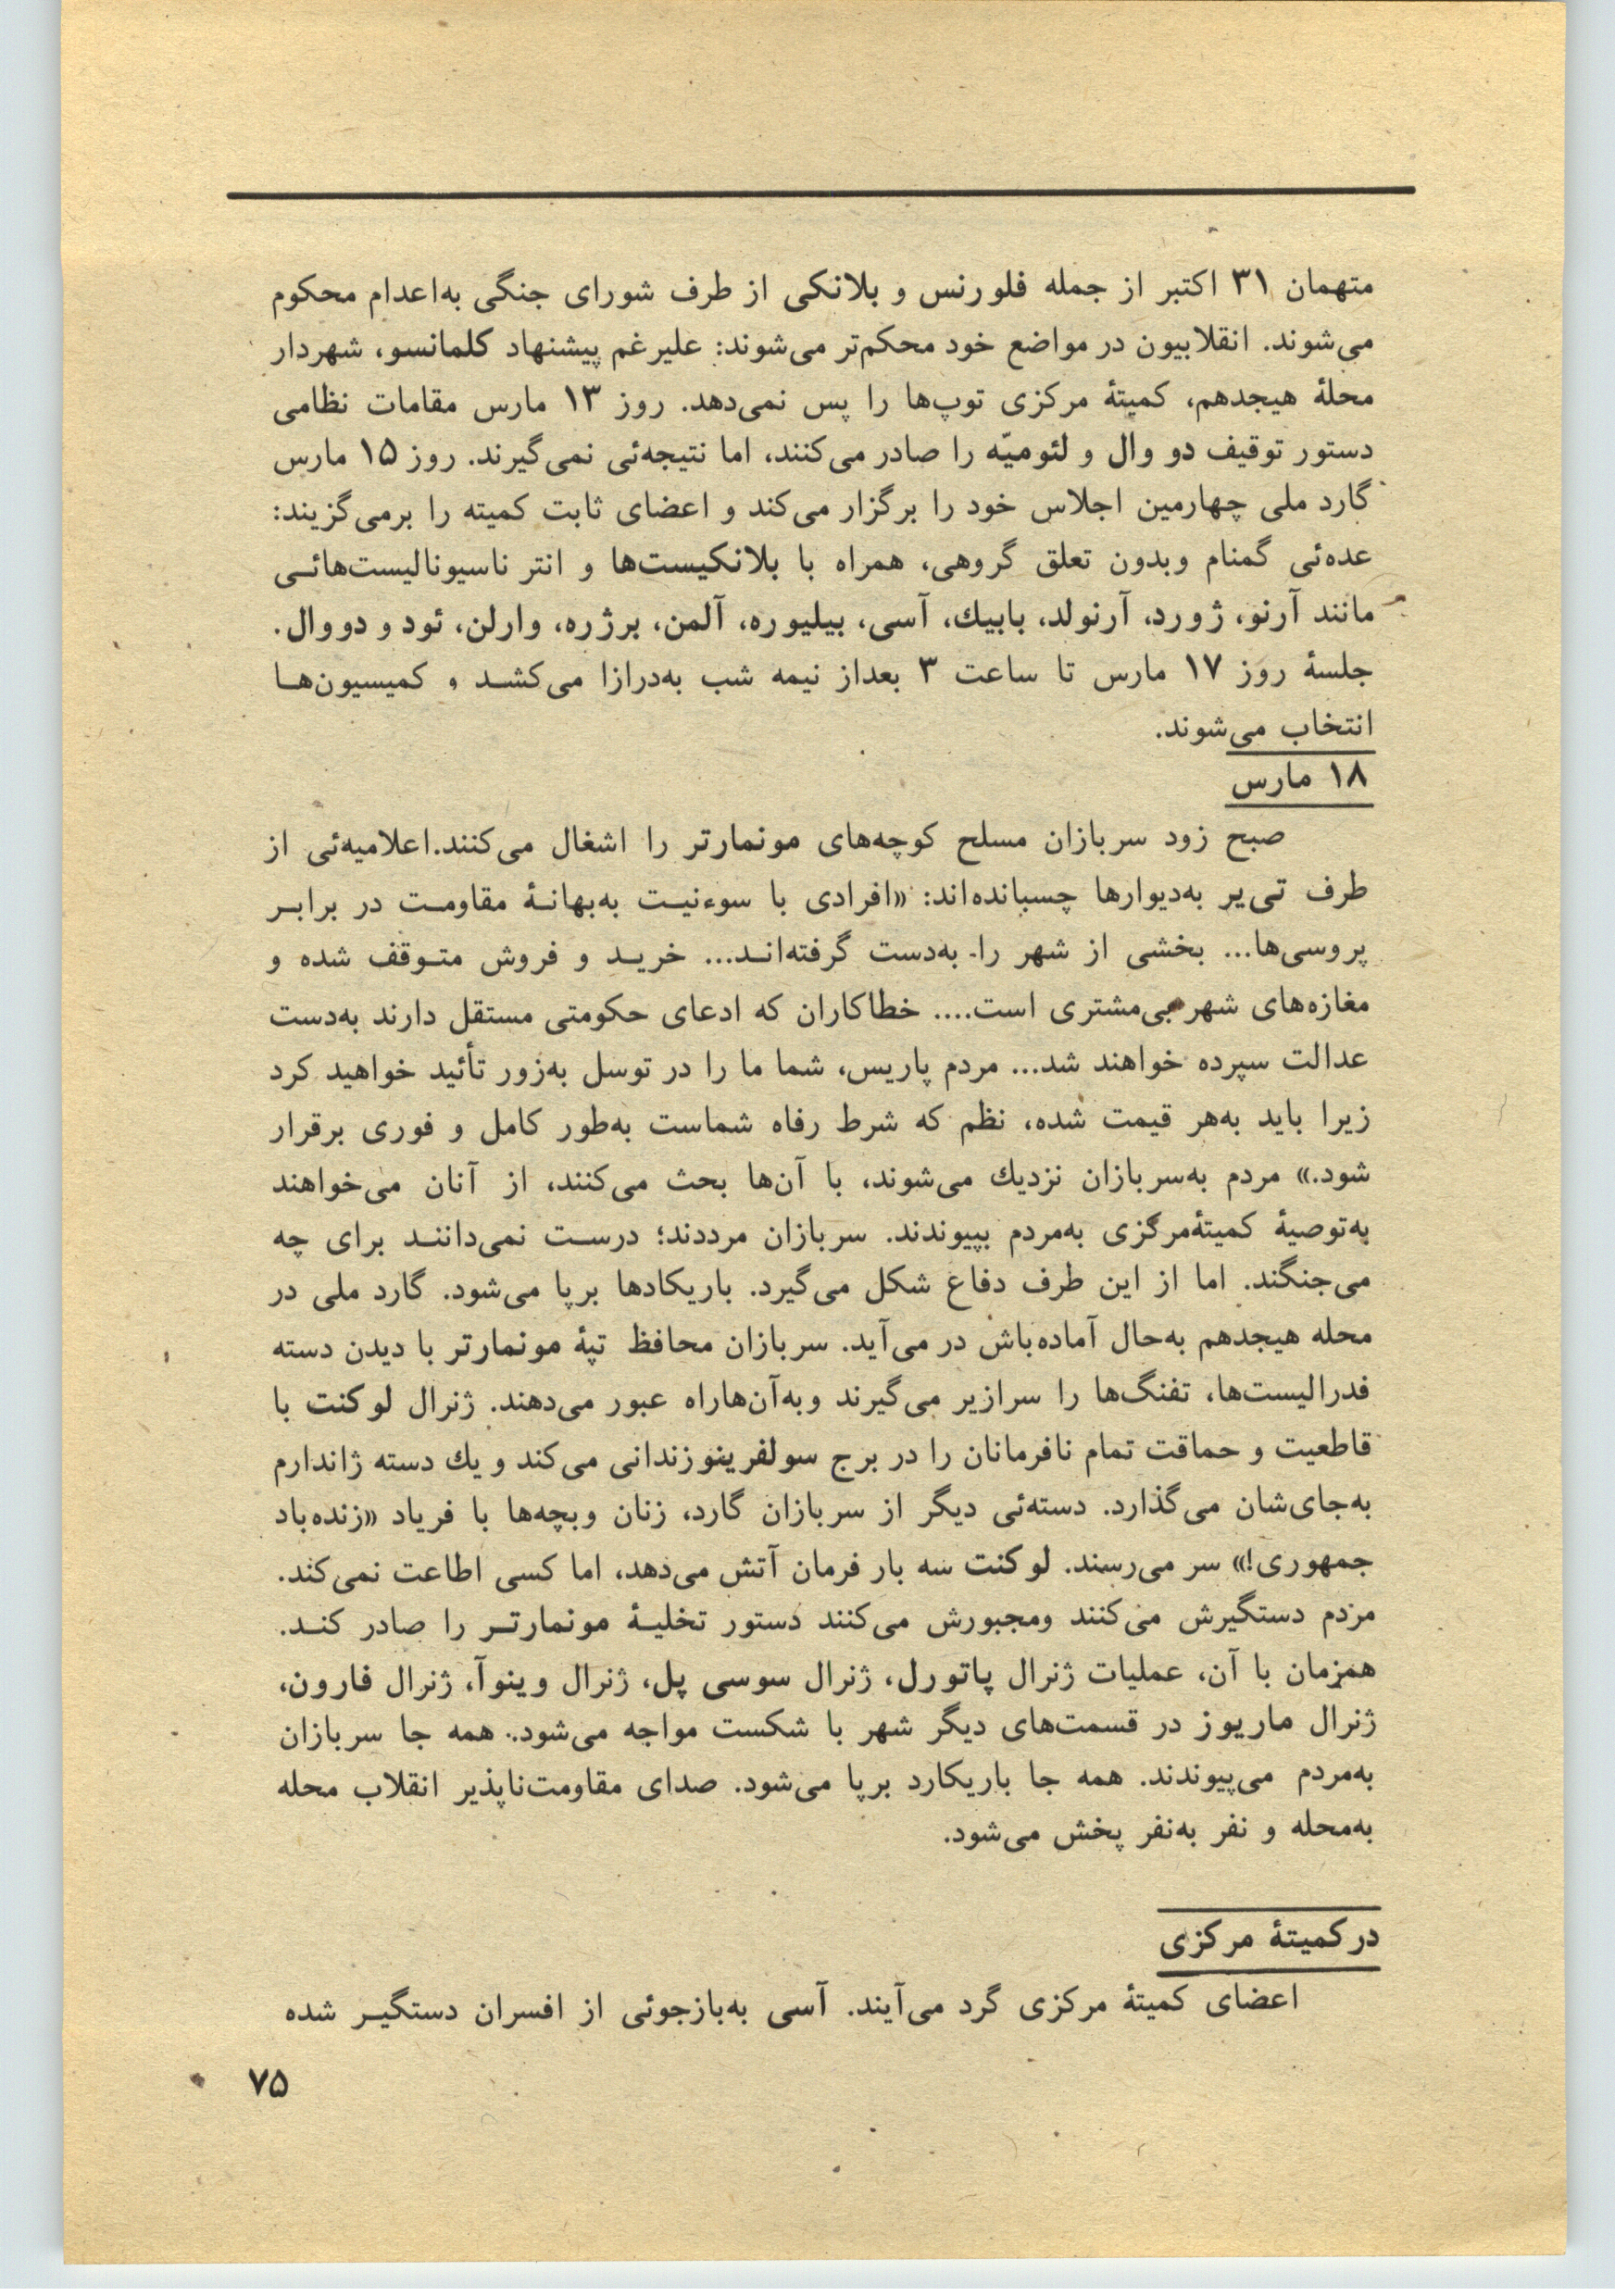 متهمان ۳۱ اکتبر از جمله فلورنس و بلانکی از طرف شورای جنگی به‌اعدام محکوم
می‌شوند. انقلابیون در مواضع خود محکم‌تر می‌شوند: علیرغم پیشنهاد کلمانسو، شهردار
محلهٔ هیجدهم، کمیتهٔ مرکزی توپ‌ها را پس نمی‌دهد. روز ۱۳ مارس مقامات نظامی
دستور توقیف دو وال و لئومیّه را صادر می‌کنند، اما نتیجه‌ئی نمی‌گیرند. روز ۱۵ مارس
گارد ملی چهارمین اجلاس خود را برگزار می‌کند و اعضای ثابت کمیته را برمی‌گزیند:
عده‌ئی گمنام وبدون تعلق گروهی، همراه با بلانکیست‌ها و انتر ناسیونالیست‌هائی
مانند آرنو، ژورد، آرنولد، بابیك، آسی، بیلیوره، آلمن، برژره، وارلن، ئود و دووال.
جلسهٔ روز ۱۷ مارس تا ساعت ۳ بعداز نیمه شب به‌درازا می‌کشد و کمیسیون‌ها
انتخاب می‌شوند.
۱۸ مارس
صبح زود سربازان مسلح کوچه‌های مونمارتر را اشغال می‌کنند.اعلامیه‌ئی از
طرف تی‌یر به‌دیوارها چسبانده‌اند: «افرادی با سوءنیت به‌بهانهٔ مقاومت در برابر
پروسی‌ها... بخشی از شهر را به‌دست گرفته‌اند... خرید و فروش متوقف شده و
مغازه‌های شهر بی‌مشتری است.... خطاکاران که ادعای حکومتی مستقل دارند به‌دست
عدالت سپرده خواهند شد... مردم پاریس، شما ما را در توسل به‌زور تأئید خواهید کرد
زیرا باید به‌هر قیمت شده، نظم که شرط رفاه شماست به‌طور کامل و فوری برقرار
شود.» مردم به‌سربازان نزدیك می‌شوند، با آن‌ها بحث می‌کنند، از آنان می‌خواهند
به‌توصیهٔ کمیتهٔ‌مرکزی به‌مردم بپیوندند. سربازان مرددند؛ درست نمی‌دانند برای چه
می‌جنگند. اما از این طرف دفاع شکل می‌گیرد. باریکادها برپا می‌شود. گارد ملی در
محله هیجدهم به‌حال آماده‌باش در می‌آید. سربازان محافظ تپهٔ مونمارتر با دیدن دسته
فدرالیست‌ها، تفنگ‌ها را سرازیر می‌گیرند وبه‌آن‌هاراه عبور می‌دهند. ژنرال لوکنت با
قاطعیت و حماقت تمام نافرمانان را در برج سولفرینوزندانی می‌کند و یك دسته ژاندارم
به‌جای‌شان می‌گذارد. دسته‌ئی دیگر از سربازان گارد، زنان وبچه‌ها با فریاد «زنده‌باد
جمهوری!» سر می‌رسند. لوکنت سه بار فرمان آتش می‌دهد، اما کسی اطاعت نمی‌کند.
مردم دستگیرش می‌کنند ومجبورش می‌کنند دستور تخلیهٔ مونمارتر را صادر کند.
همزمان با آن، عملیات ژنرال پاتورل، ژنرال سوسی پل، ژنرال وینوآ، ژنرال فارون،
ژنرال ماریوز در قسمت‌های دیگر شهر با شکست مواجه می‌شود. همه جا سربازان
به‌مردم می‌پیوندند. همه جا باریکارد برپا می‌شود. صدای مقاومت‌ناپذیر انقلاب محله
به‌محله و نفر به‌نفر پخش می‌شود.
در کمیتهٔ مرکزی
اعضای کمیتهٔ مرکزی گرد می‌آیند. آسی به‌بازجوئی از افسران دستگیر شده
۷۵